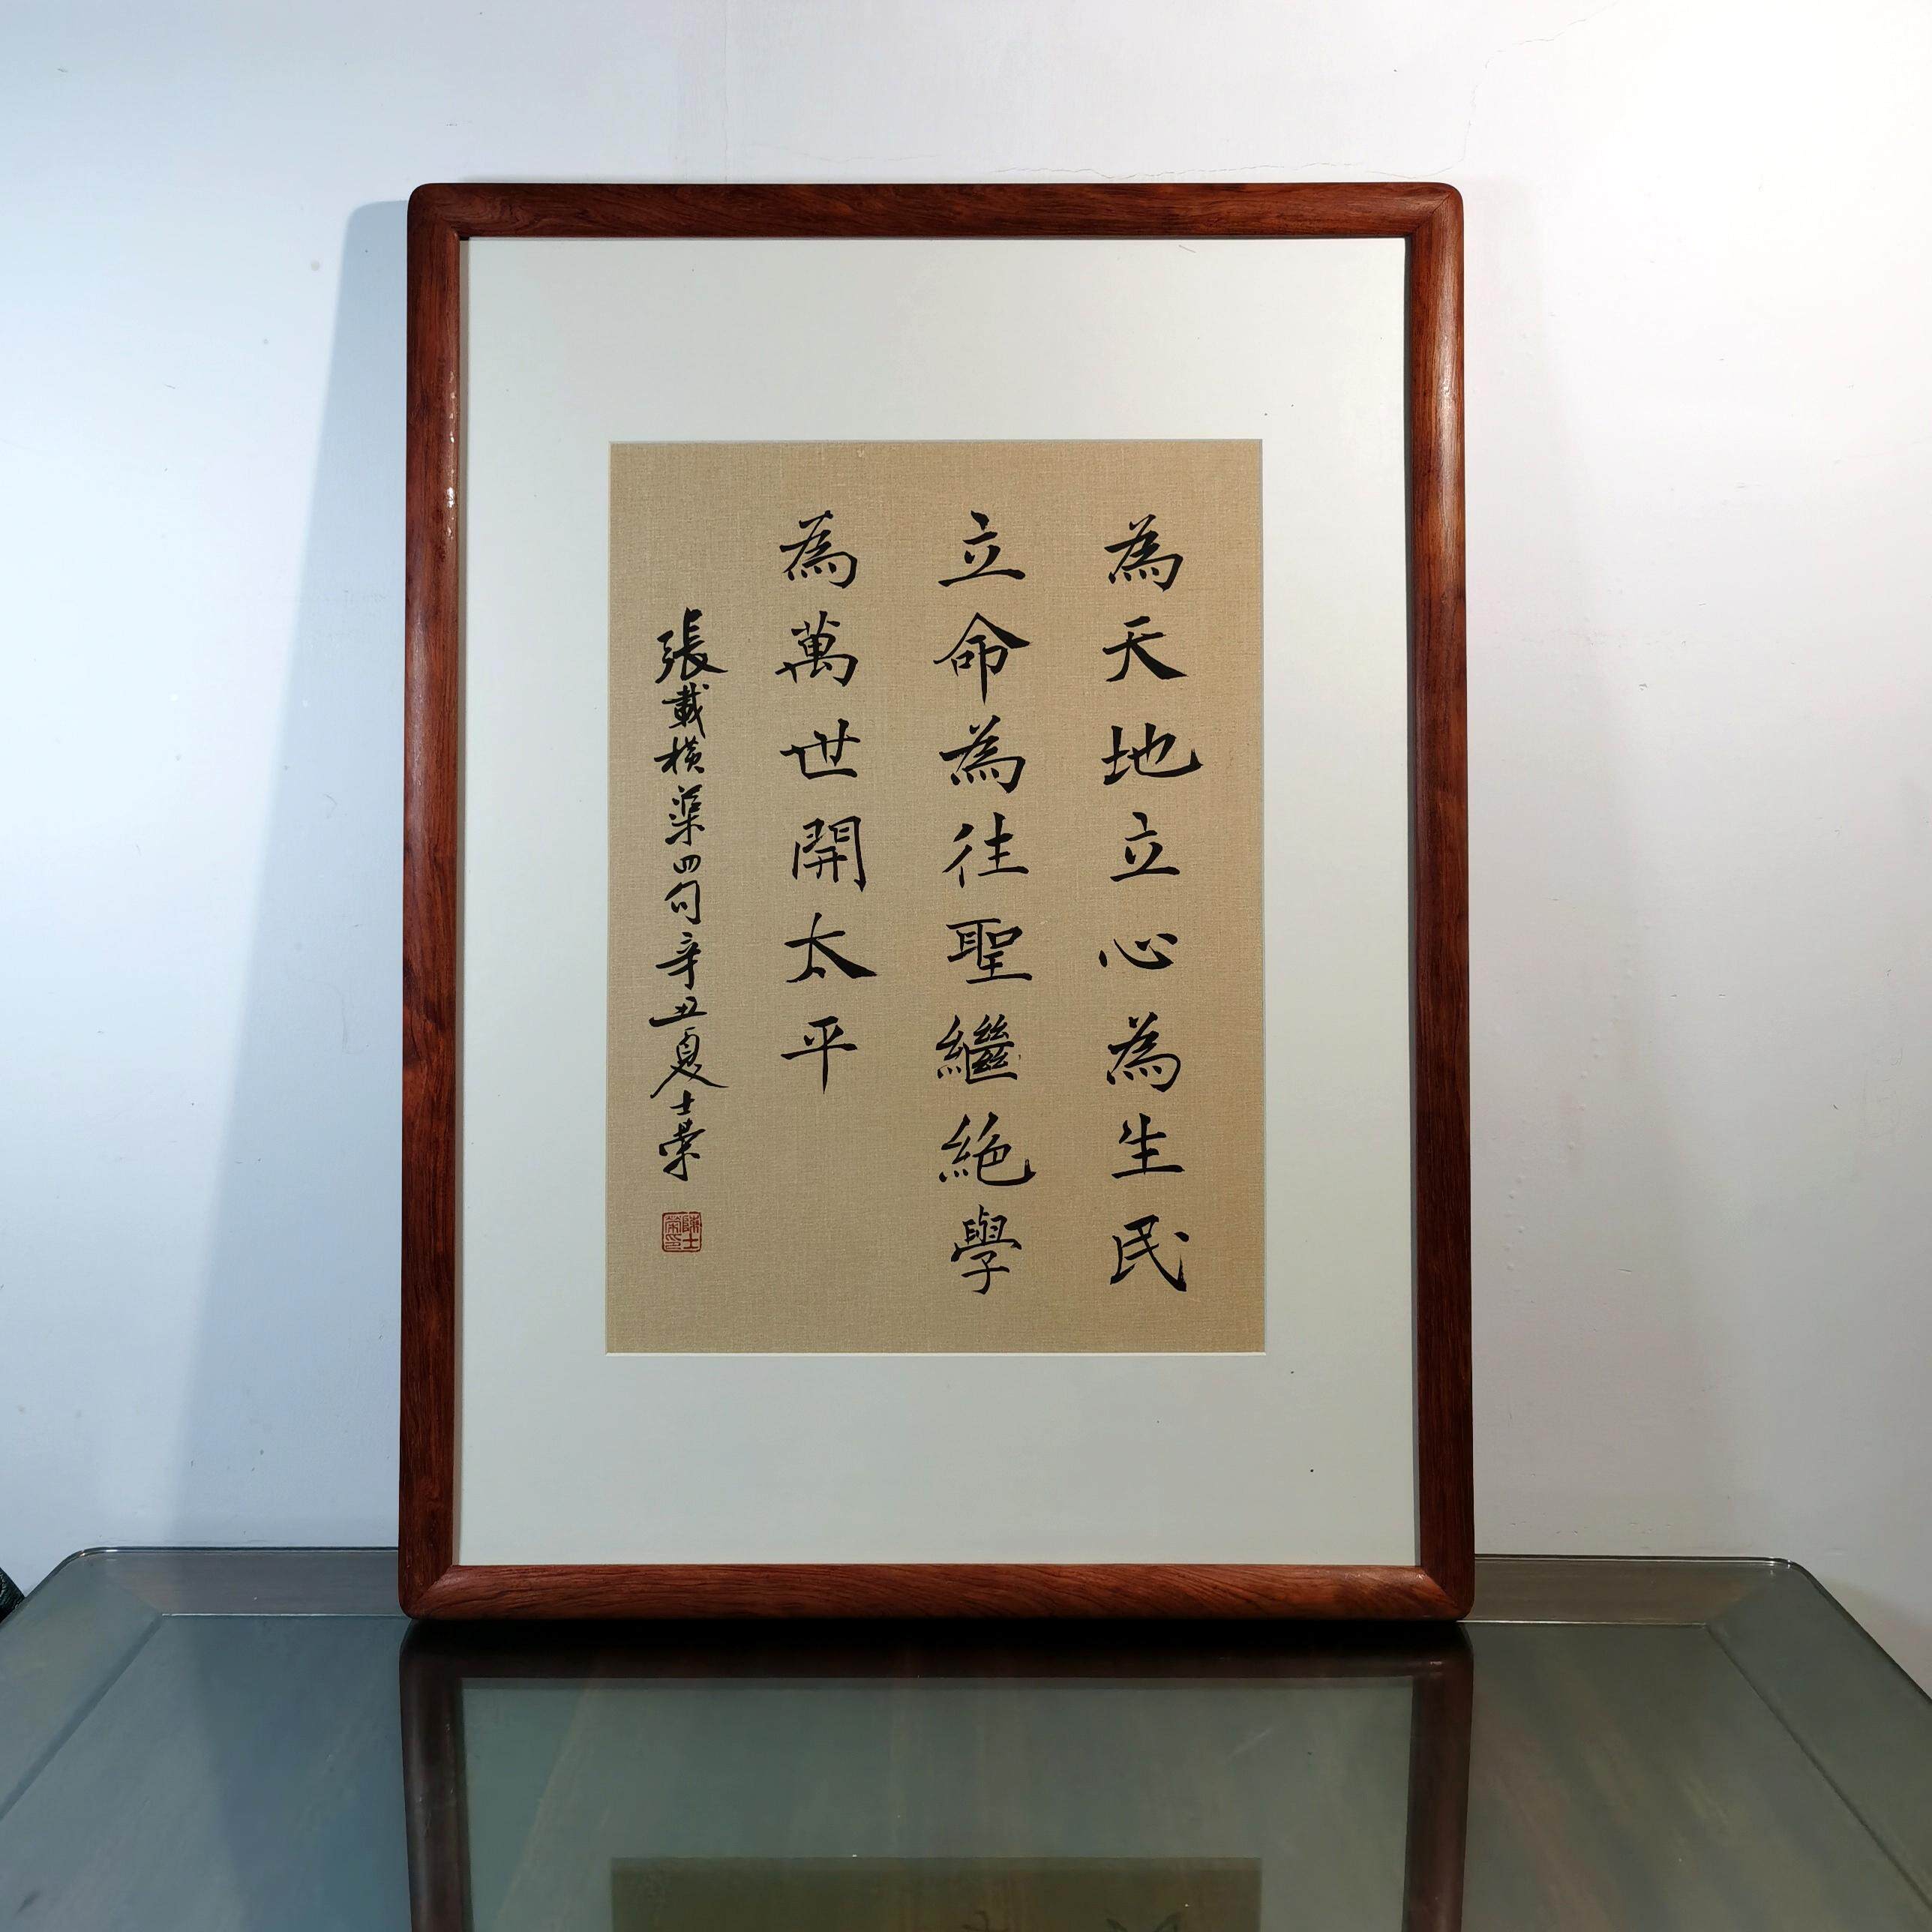 為天地立心為生民
立命為往聖繼絕學
為萬世開太平
張載橫渠四句辛丑夏士榮
陳士榮印